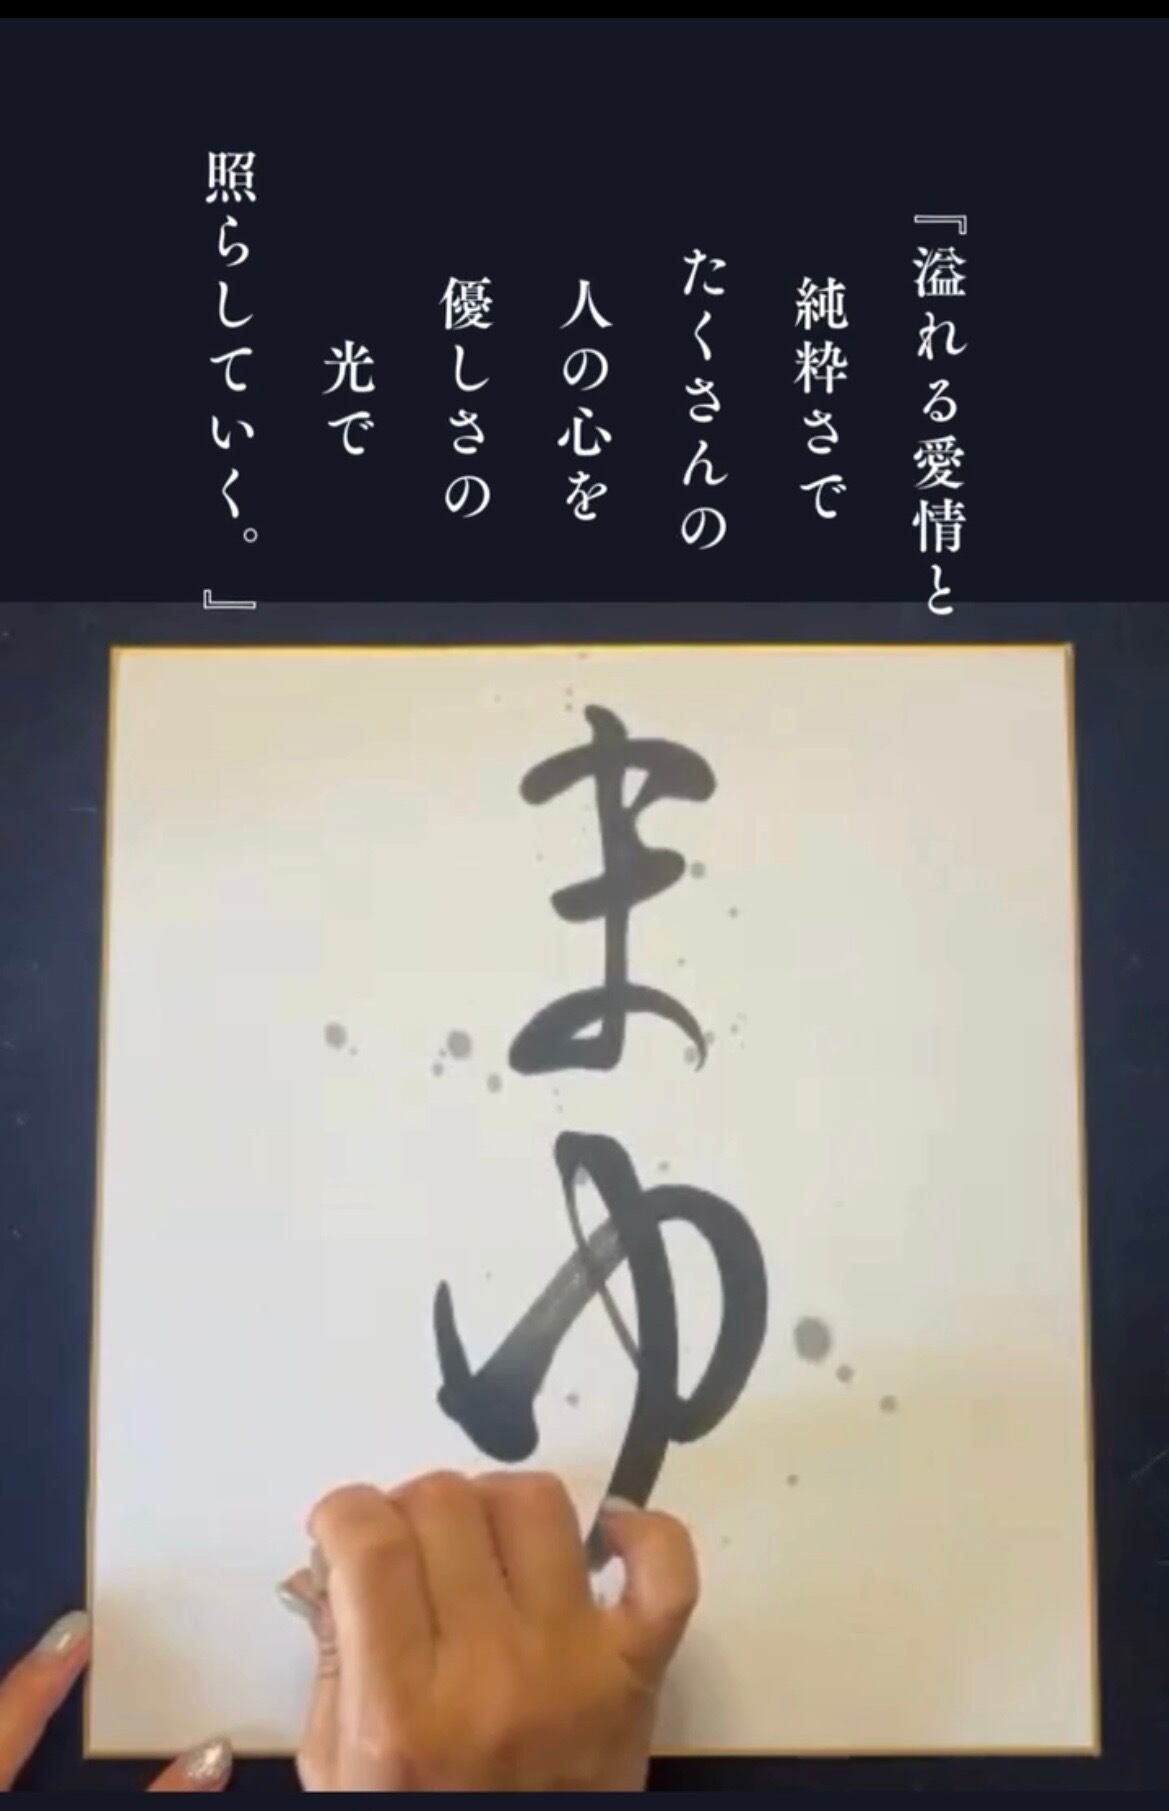 『溢れる愛情と
純粋さで
たくさんの
人の心を
優しさの
光で
照らしていく。』
まゆ